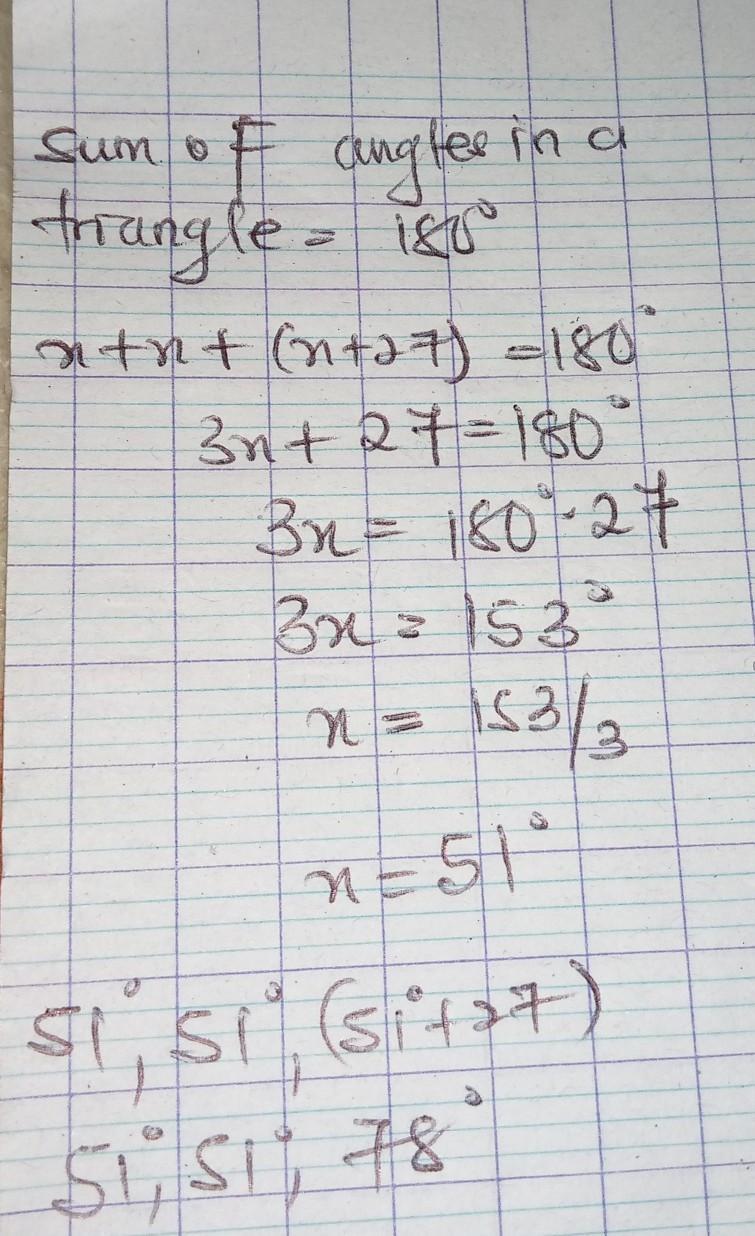 sum of angles in a
triangle = 180°
x+x+(x+27) =180°
3x+27=180°
3x= 180°-27
3x = 153°
x = 153/3
x=51°
51°, 51°, (51°+27)
51°, 51°, 78°